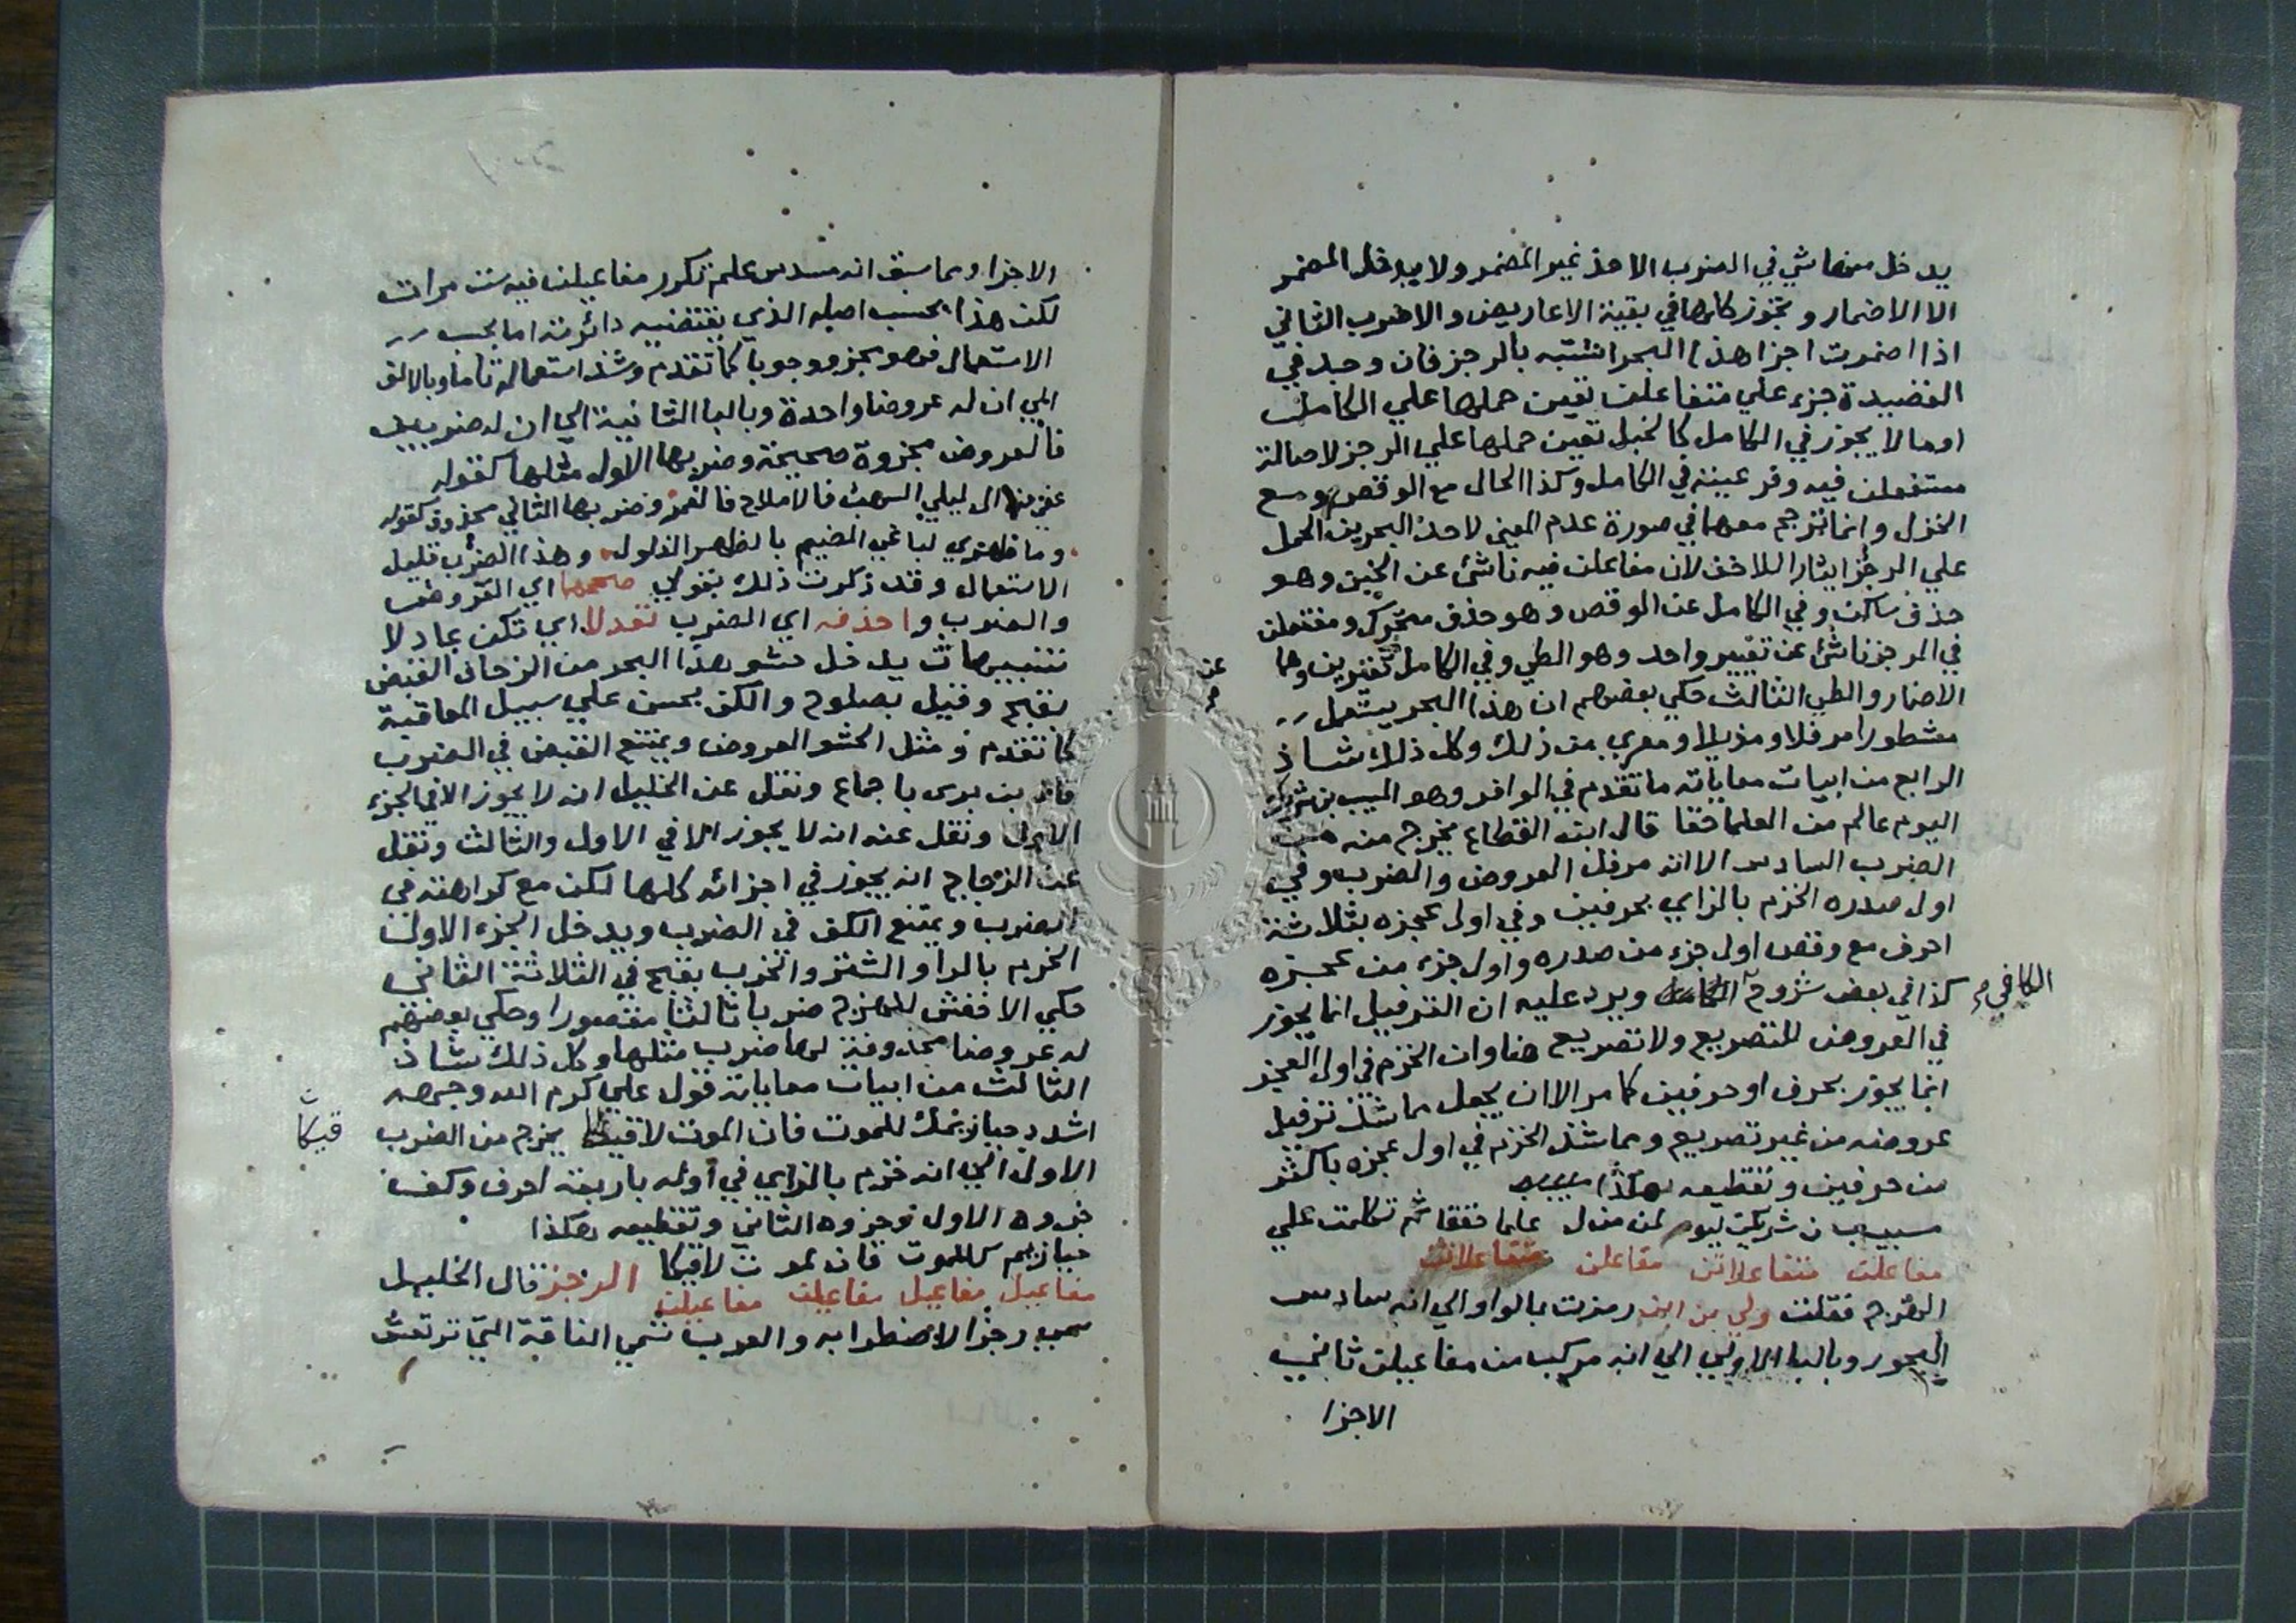 يدخل منها شي في الضرب الاحذ غير المضمر ولا يدخل المضمر
الا الاضمار وتجوز كلها في بقية الاعاريض والاضرب الثاني
اذا اضمرت اجزا هذا البحر اشتبه بالرجز فان وجد في
القصيدة جزء علي متفاعلن تعين حملها علي الكامل
اوما لا يجوز في الكامل كالخبل تعين حملها علي الرجز لاصالة
مستفعلن فيه وفرعيته في الكامل وكذا الحال مع الوقص ومع
الخزل وانما ترجح معهما في صورة عدم المعين لاحد البحرين الحمل
علي الرجز ايثارا للاخف لان مفاعلن فيه ناشئ عن الخبن وهو
حذف ساكن وفي الكامل عن الوقص وهو حذف متحرك ومفتعلن
في الرجز ناشئ عن تغيير واحد وهو الطي وفي الكامل عن تغيرين وهما
الاضمار والطي الثالث حكي بعضهم ان هذا البحر يستعمل
مشطورا مرفلا ومذيلا ومعري من ذلك وكل ذلك شاذ
الرابع من ابيات معاياته ما تقدم في الوافر وهو المسيب بن شريك
اليوم عالم من العلما حقا قال ابن القطاع يخرج منه من
الضرب السادس الا انه مرفل العروض والضرب وفي
اول صدره الخزم بالزاي بحرفين وفي اول عجزه بثلاثة
احرف مع وقص اول جزء من صدره واول جزء من عجزه
كذا في بعض شروح الكافي ويرد عليه ان الترفيل انما يجوز
في العروض للتصريع ولا تصريع هنا وان الخزم في اول العجز
انما يجوز بحرف او حرفين كما مر الا ان يجعل مما شذ ترفيل
عروضه من غير تصريع ومما شذ الخزم في اول عجزه باكثر
من حرفين وتقطيعه هكذا
سيببن شريكن ليوم لمن منل علما حققا ثم تكلمت علي
مفاعلن متفاعلاتن مفاعلن متفاعلاتن
الهزج فقلت ولي من ابن رمزت بالواو الي انه سادس
البحور وبالبا الاولي الي انه مركب من مفاعيلن ثاني
الاجزا
الاجزا ومما سبق انه مسدس علم تكرر مفاعيلن فيه ست مرات
لكن هذا بحسب اصله الذي يقتضيه دائرته اما بحسب
الاستعمال فهو مجزو وجوبا كما تقدم وشذ استعماله تاما وبالالف
الي ان له عروضا واحدة وبالبا الثانية الي ان له ضربين
فالعروض مجزوة صحيحة وضربها الاول مثلها كقوله
عفي من ال ليلي السهب فالاملاح فالغمر وضربها الثاني محذوف كقوله
وما ظهري لباغي الضيم بالظهر الذلول وهذا الضرب قليل
الاستعمال وقد ذكرت ذلك بقولي صححها اي العروض
والضرب واحذفه اي الضرب تعدلا اي تكن عادلا
تنبيهات يدخل حشو هذا البحر من الزحاف القبض
بقبح وقيل بصلوح والكف بحسن علي سبيل المعاقبة
كما تقدم ومثل الحشو العروض ويمتنع القبض في الضرب
قال بن بري باجماع ونقل عن الخليل انه لا يجوز الا في الجزء
الاول ونقل عنه انه لا يجوز الا في الاول والثالث ونقل
عن الزجاج انه يجوز في اجزائه كلها لكن مع كراهته في
الضرب ويمتنع الكف في الضرب ويدخل الجزء الاول
الخرم بالرا والشتر والخرب بقبح في الثلاثة الثاني
حكي الاخفش للهزج ضربا ثالثا مقصورا وحكي بعضهم
له عروضا محذوفة لها ضرب مثلها وكل ذلك شاذ
الثالث من ابيات معاياته قول علي كرم الله وجهه
اشدد حيازيمك للموت فان الموت لاقيكا يخرج من الضرب
قيكا
الاول الي انه خزم بالزاي في اوله باربعة احرف وكف
جزوه الاول وجزوه الثاني وتقطيعه هكذا
حيازيم كللموت فان لمو ت لاقيكا الرجز قال الخليل
مفاعيل مفاعيل مفاعيلن مفاعيلن
سمي رجزا لاضطرابه والعرب تسمي الناقة التي ترتعش